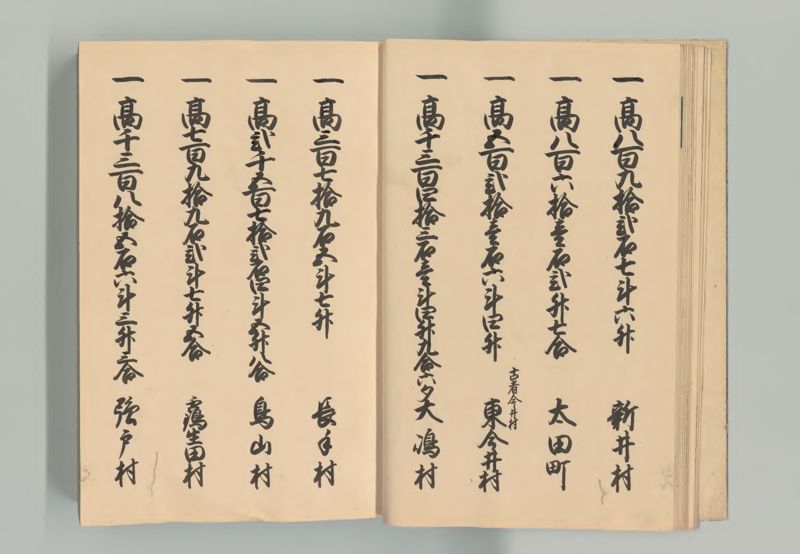 一 高八百九拾弐石七斗六升 新井村
一 高八百六拾壱石弐升七合 太田町
一 高五百弐拾壱石六斗四升 東今井村
古者今井村
一 高千三百四拾三石壱斗四升九合六夕 大嶋村
一 高三百七拾九石五斗七升 長手村
一 高弐千五百七拾弐石四斗五升八合 鳥山村
一 高七百九拾九石弐斗七升五合 鶴生田村
一 高千三百八拾五石六斗三升三合 強戸村